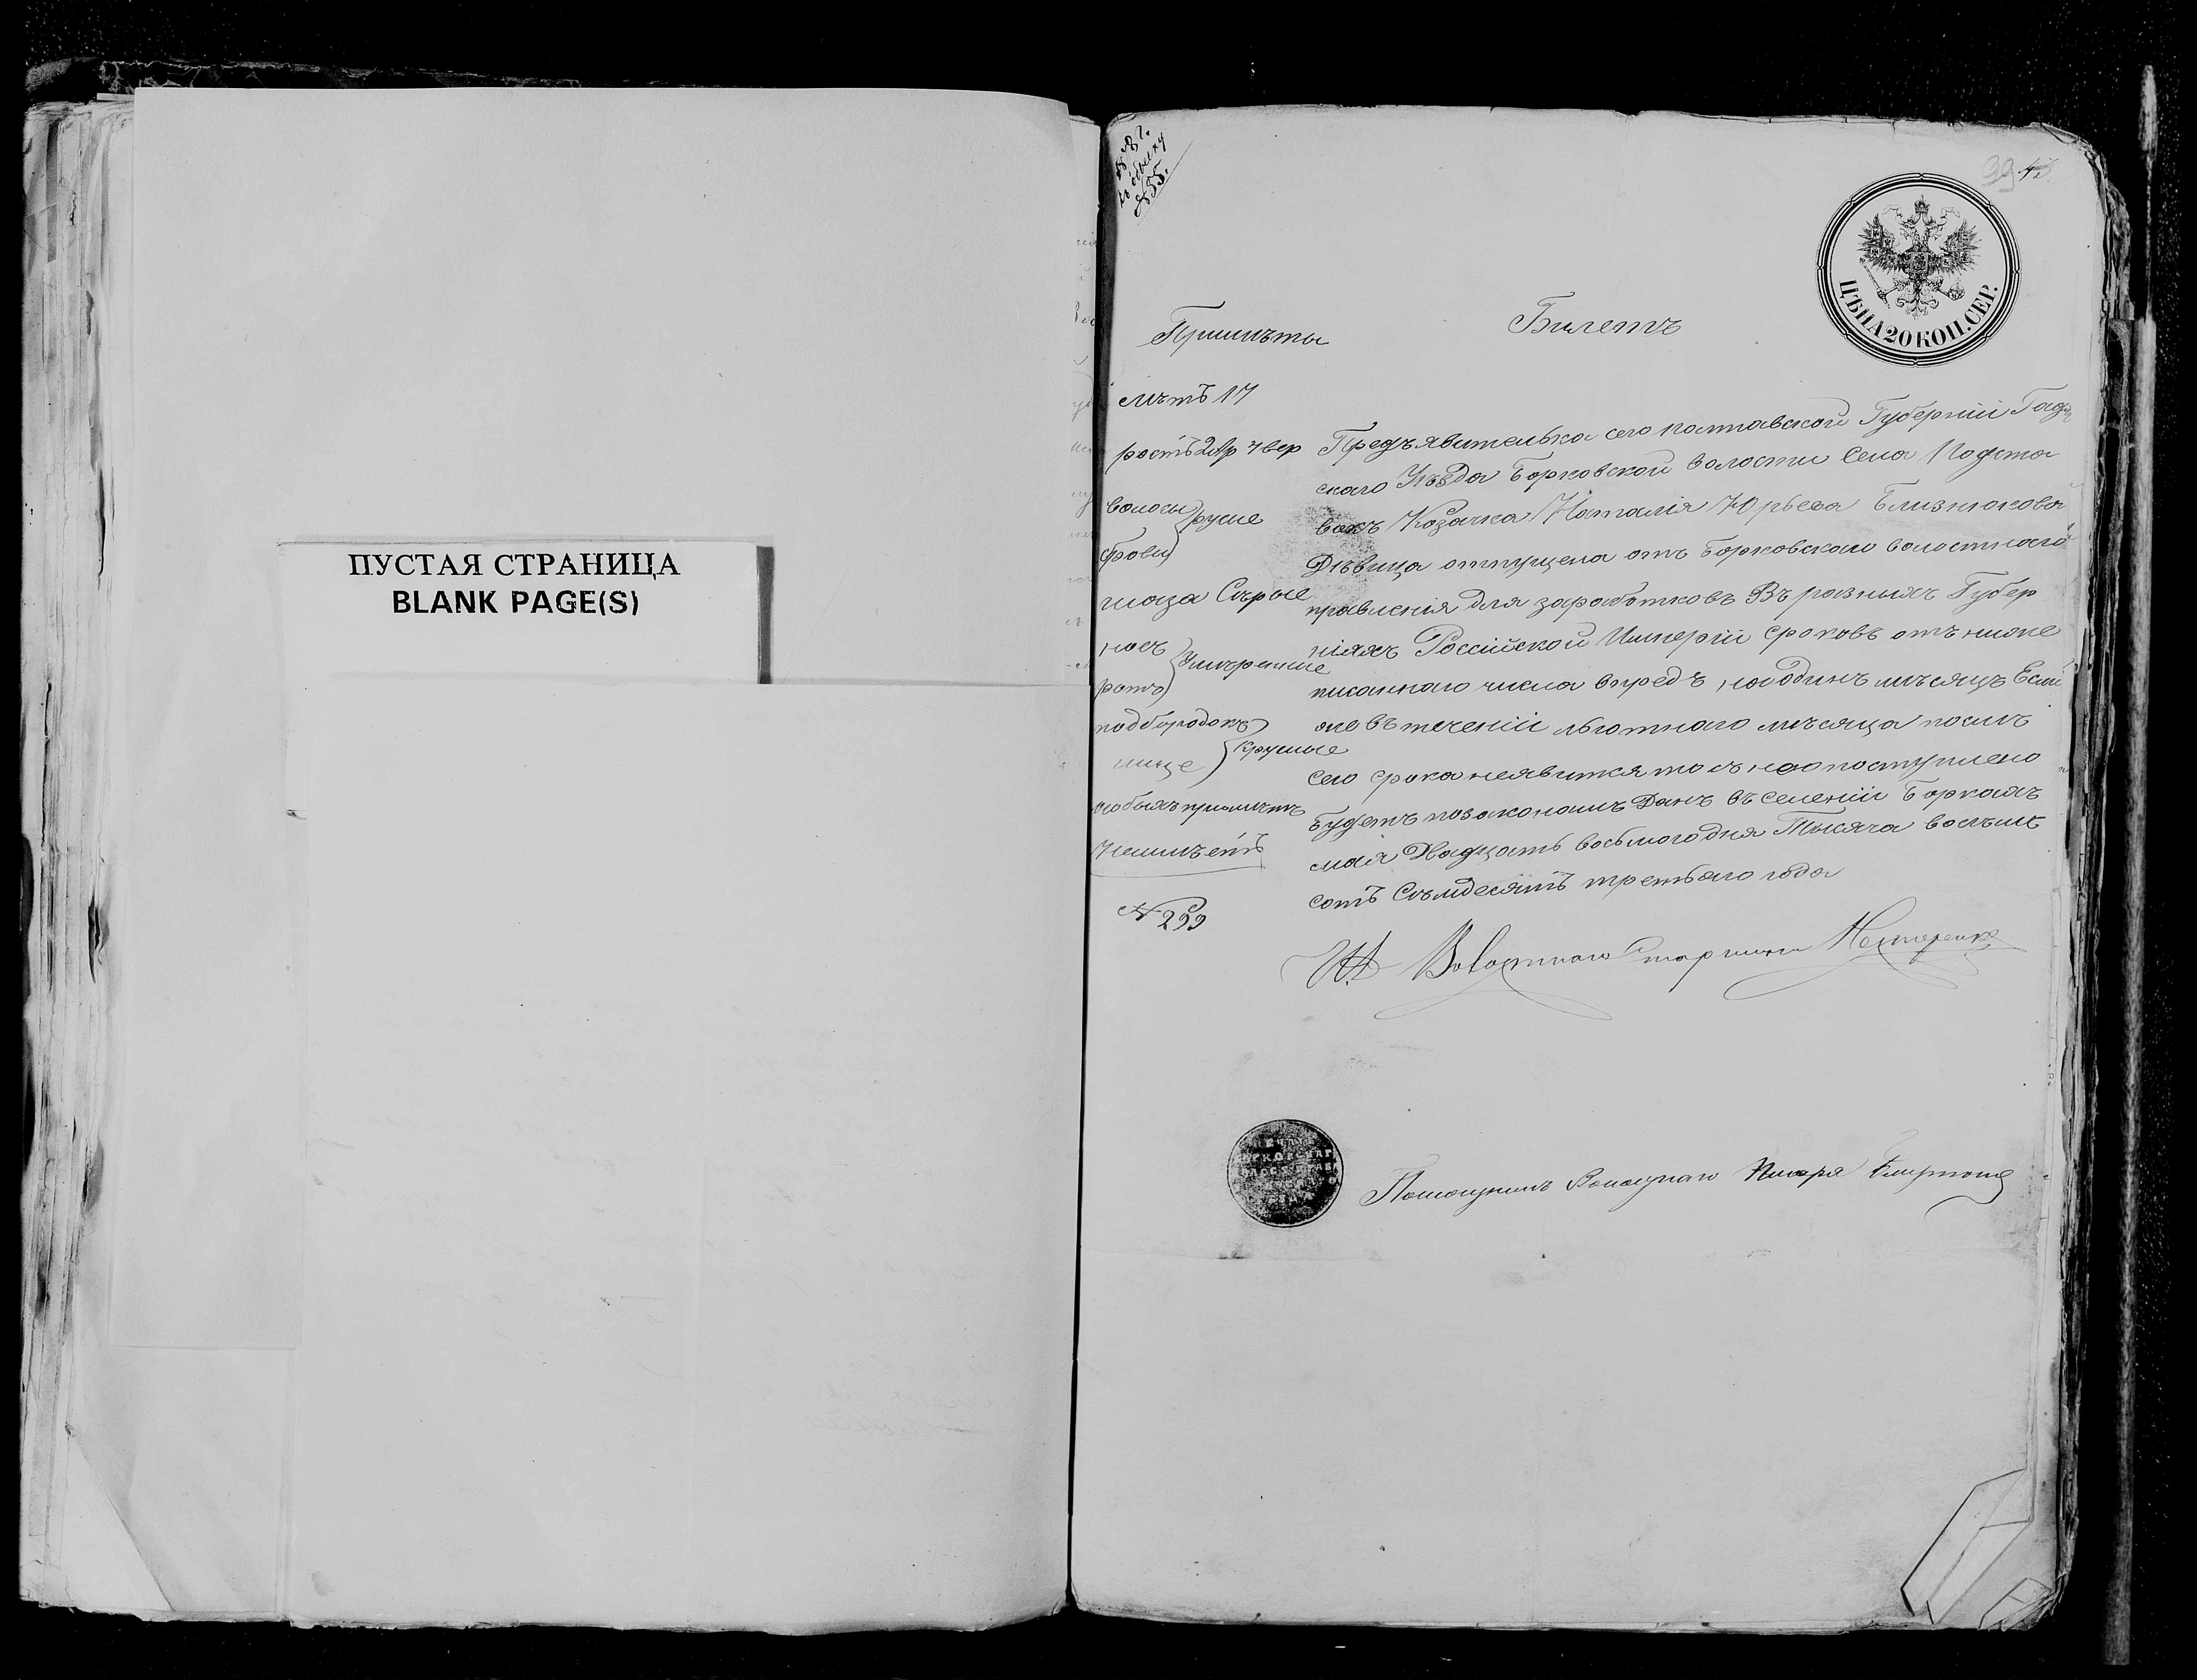 ПУСТАЯ СТРАНИЦА
BLANK PAGE(S)
39
ЦѢНА 20 КОП. СЕР.
Билетъ
Примѣты
лѣтъ 17
ростъ 2 ар 4 вер
волосы
брови
русые
глаза Сѣрые
носъ
ротъ
Умѣренные
подбородокъ
лице
Круглые
особыхъ примѣтъ
Неимѣетъ
№ 299
Предъявителька сего Полтавской Губерніи Гадя
скаго Уѣзда Борковской волости Села Подста
вокъ Козачка Наталія Юрьева Близнюкова
Дѣвица отпущена отъ Борковскаго волостнаго
правленія для заработковъ Въ разныхъ Губер
ніяхъ Россійской Имперіи срокомъ отъ ниже
писаннаго числа впредъ на одинъ мѣсяцъ Если
же въ теченіи льготнаго мѣсяца послѣ
сего срока неявится то съ нею поступлено
будетъ по законамъ Данъ въ селеніи Боркахъ
мая Двадцать восьмого дня Тысяча восѣмь
сотъ Сѣмдесятъ третьяго года
И.Д. Волостнаго Старшины Нестеренко
Помощникъ Волостнаго Писаря